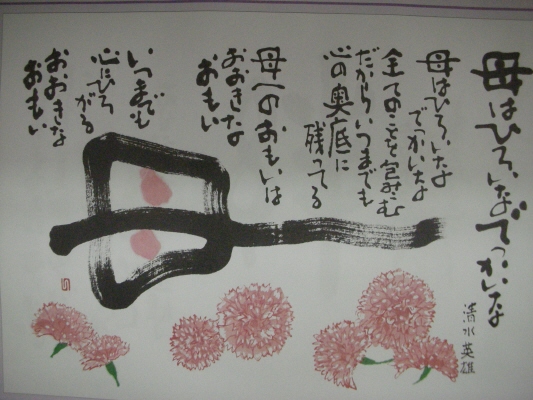 母はひろいなでっかいな
清水 英雄
母はひろいな
でっかいな
全てのことを包みこむ
だからいつまでも
心の奥底に
残ってる
母へのおもいは
おおきな
おもい
いつまでも
心にひろ
がる
おおきな
おもい
母